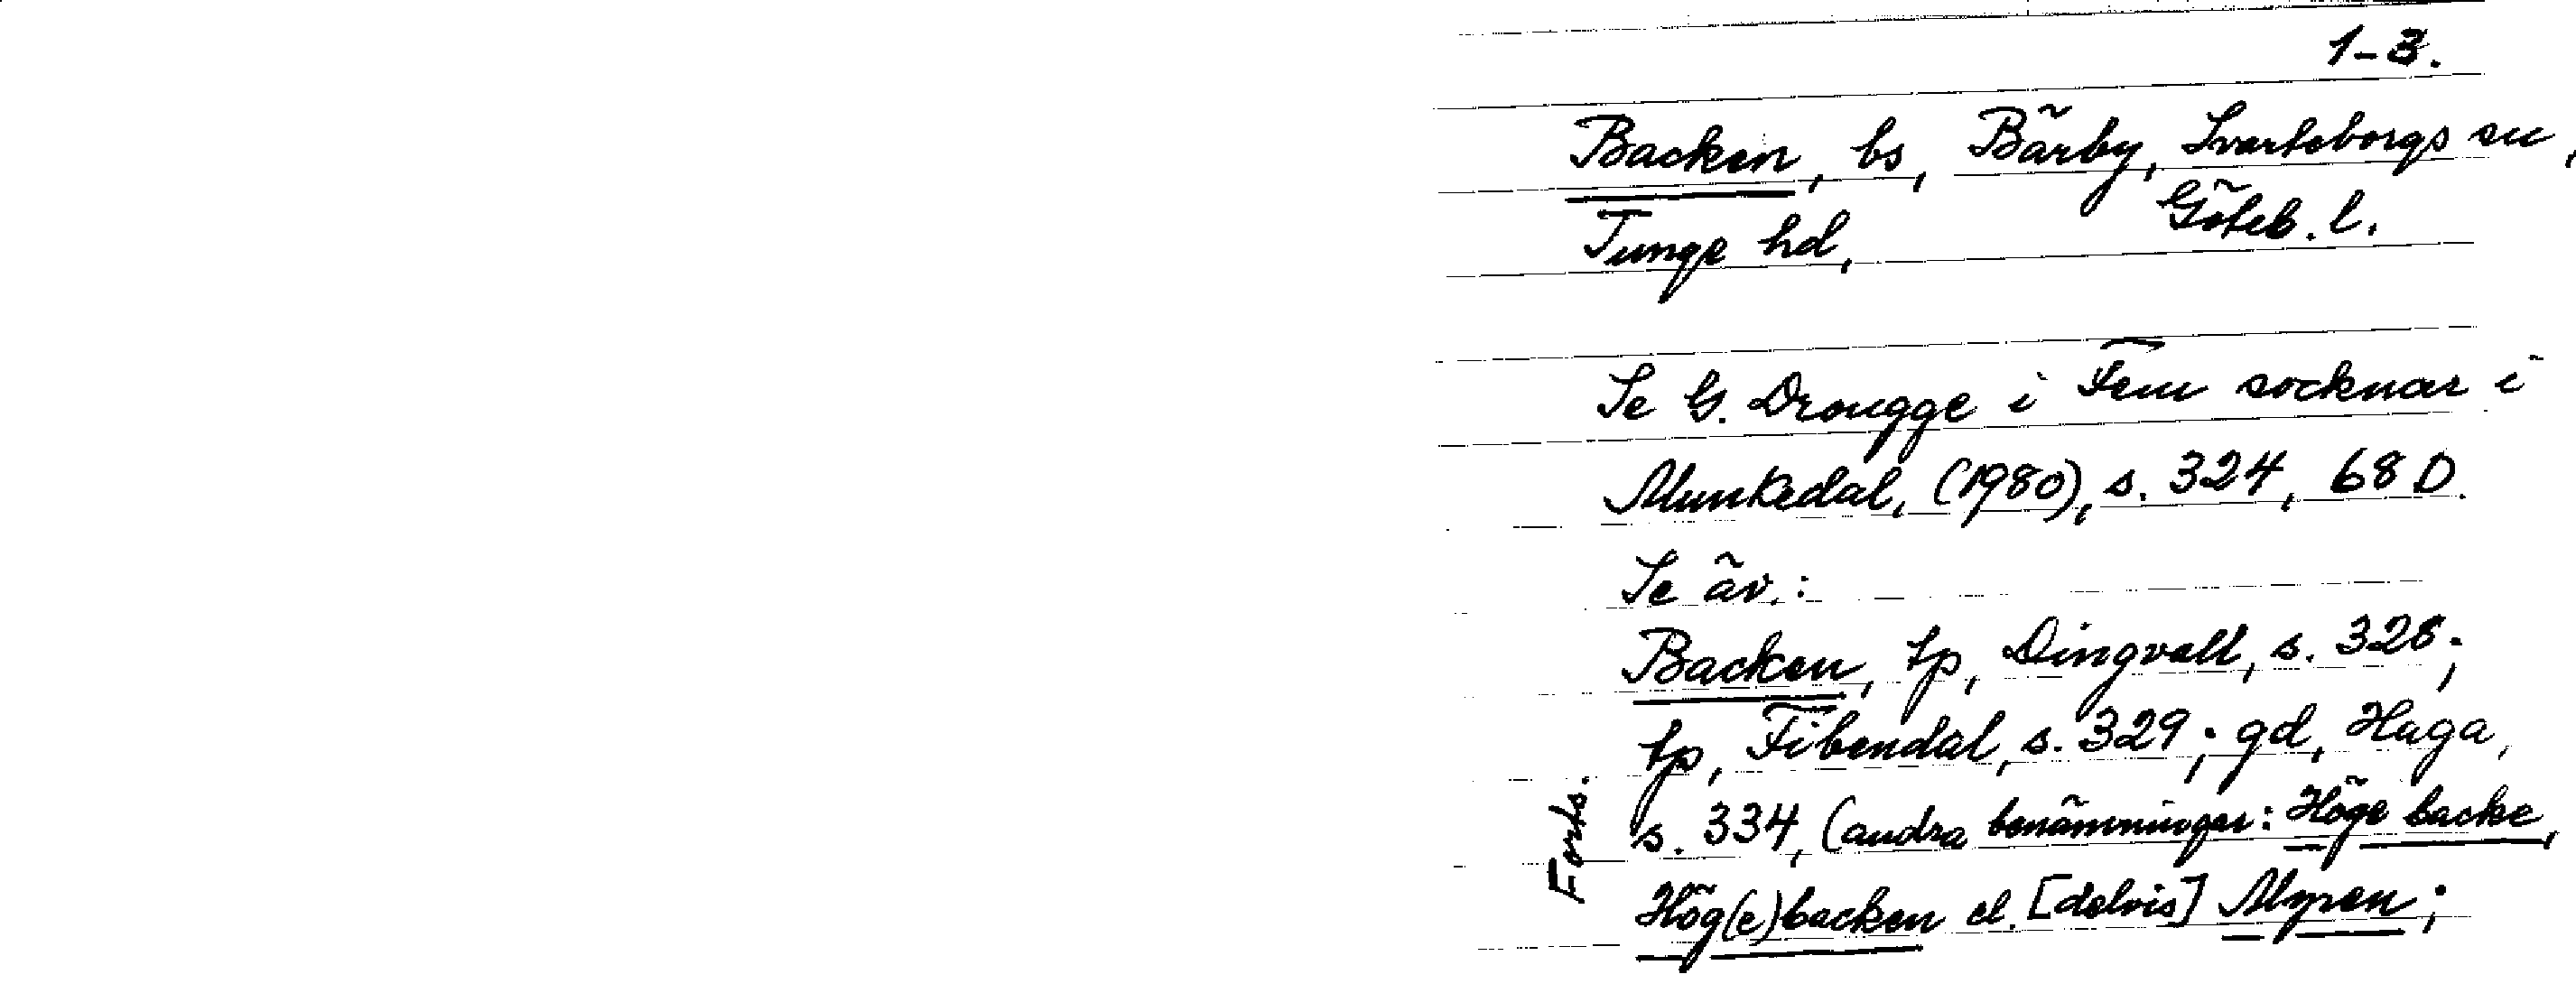 1-3.
Backen, bs, Bärby, Svarteborgs sn,
Tunge hd, Göteb. l.
Se G. Drougge i Fem socknar i
Munkedal, (1980), s. 324, 68 D.
Se äv.:
Backen, tp, Dingvall, s. 328;
tp, Fibendal, s. 329; gd, Haga,
s. 334, (andra benämningar: Höge backe,
Hög(e)backen el. [delvis] Myren;
Forts.